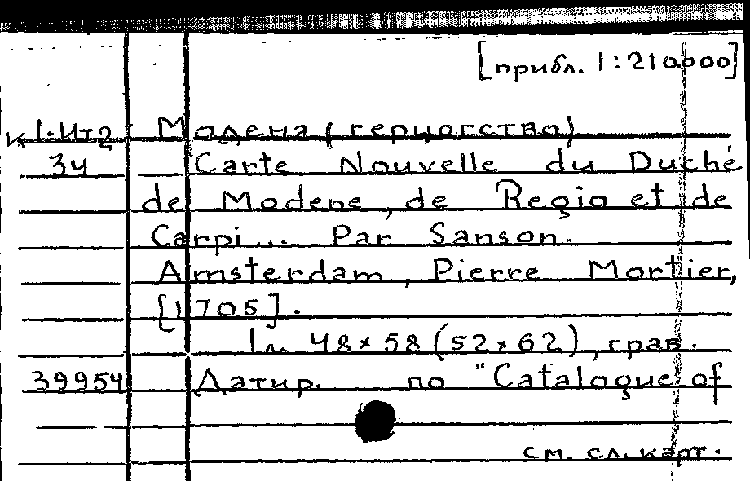 [прибл. 1:210000]
К 1-Ит2 Модена (герцогство)
34 Carte Nouvelle du Duché
de Modene, de Regio et de
Carpi... Par Sanson.
Amsterdam, Pierre Mortier,
[1705].
1 л. 48×58 (52×62), грав.
39954 Датир. по "Catalogue of
см. сл. карт.